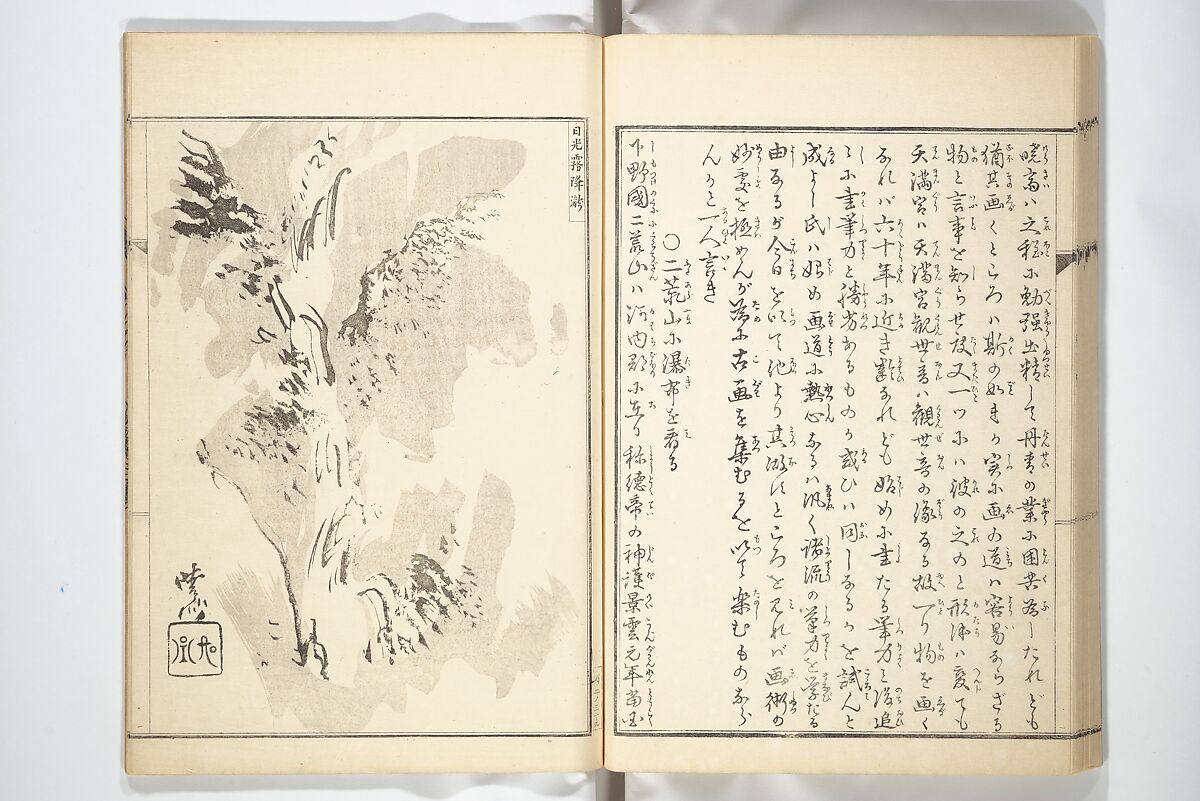 暁斎ハ之程に勉強出精して丹青の業に困苦為したれども
猶其画くところハ斯の如きか実に画の道ハ容易ならざる
物と言事を知らせ度又一ツにハ彼の之のと形ハ変ても
天満宮ハ天満宮観世音ハ観世音の像なる故一ツ物を画く
なれバ六十年に近き齢なれども始めに画たる筆力と後追
々に画筆力と勝劣あるものか或ひハ同しなるかを試んと
成よし氏ハ始め画道に熱心なるハ汎く諸流の筆力を学たる
由なるが今日を以て他より其潮ところを見れバ画術の
妙処を極めんが為に古画を集むるを以て楽むものなら
んかと一人言き
〇二荒山に瀑布を看る
下野國二荒山ハ河内郡に在り称徳帝の神護景雲元年当国
日光霧降瀧
暁斎